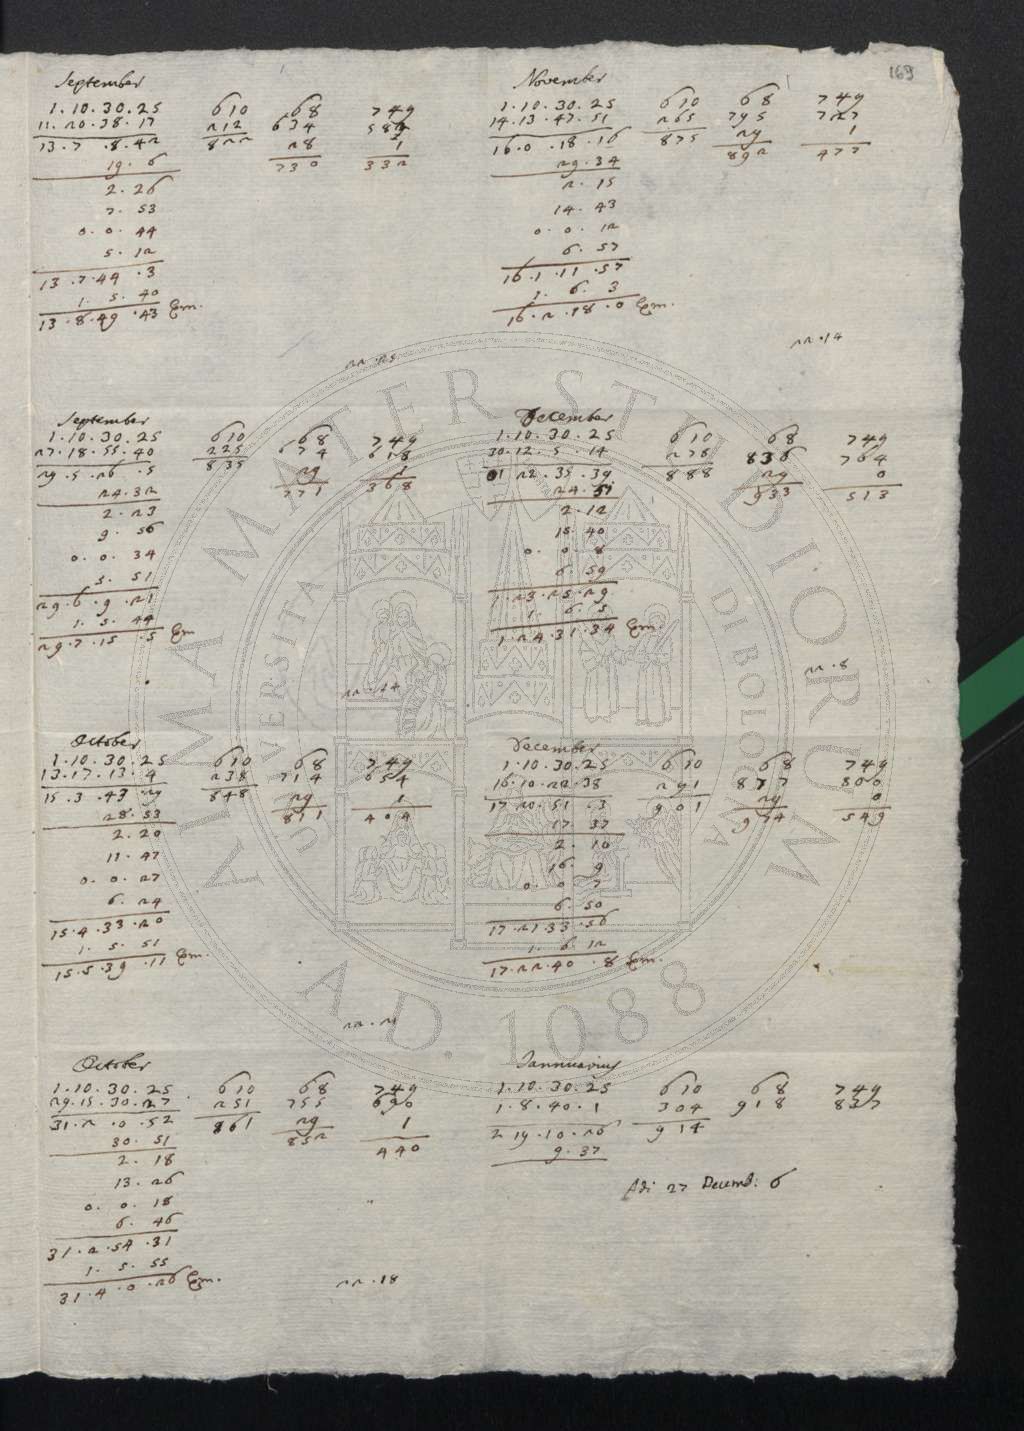 169
September
1.10.30.25 610 68 749
11.20.38.17 212 634 582
13.7.8.42 822 28 1
19.6 730 332
2.26
7.53
0.0.44
5.12
13.7.44.3
1.5.40
13.8.49.43 Em.
22.25
September
1.10.30.25 610 68 749
27.18.55.40 225 674 618
29.5.26.5 835 29 1
24.32 771 368
2.23
9.56
0.0.34
5.51
29.6.9.21
1.5.44
29.7.15.5 Em
22.24
October
1.10.30.25 610 68 749
13.17.13.4 238 714 654
15.3.43.29 848 29 1
28.53 811 404
2.20
11.47
0.0.27
6.24
15.4.33.20
1.5.51
15.5.39.11 Em.
22.21
October
1.10.30.25 610 68 749
29.15.30.27 251 755 690
31.2.0.52 861 29 1
30.51 852 440
2.18
13.26
0.0.18
6.46
31.2.54.31
1.5.55
31.4.0.26 Em.
22.18
November
1.10.30.25 610 68 749
14.13.47.51 265 795 727
16.0.18.16 875 29 1
29.34 892 477
2.15
14.43
0.0.12
6.57
16.1.11.57
1.6.3
16.2.18.0 Em.
22.14
December
1.10.30.25 610 68 749
30.12.5.14 278 836 764
01 22.35.39 888 29 0
24.51 933 513
2.12
15.40
0.0.8
6.59
1.23.25.29
1.6.5
1.24.31.34 Em.
22.8
December
1.10.30.25 610 68 749
16.10.22.38 291 877 800
17 20.51.3 901 29 0
17.37 974 549
2.10
16.9
0.0.7
6.50
17.21.33.56
1.6.12
17.22.40.8 Em.
Iannuarius
1.10.30.25 610 68 749
1.8.40.1 304 918 837
2 19.10.26 914
9.37
Adi 27 Decemb. 6
ALMA MATER STUDIORUM
A.D. 1088
UNIVERSITÀ DI BOLOGNA